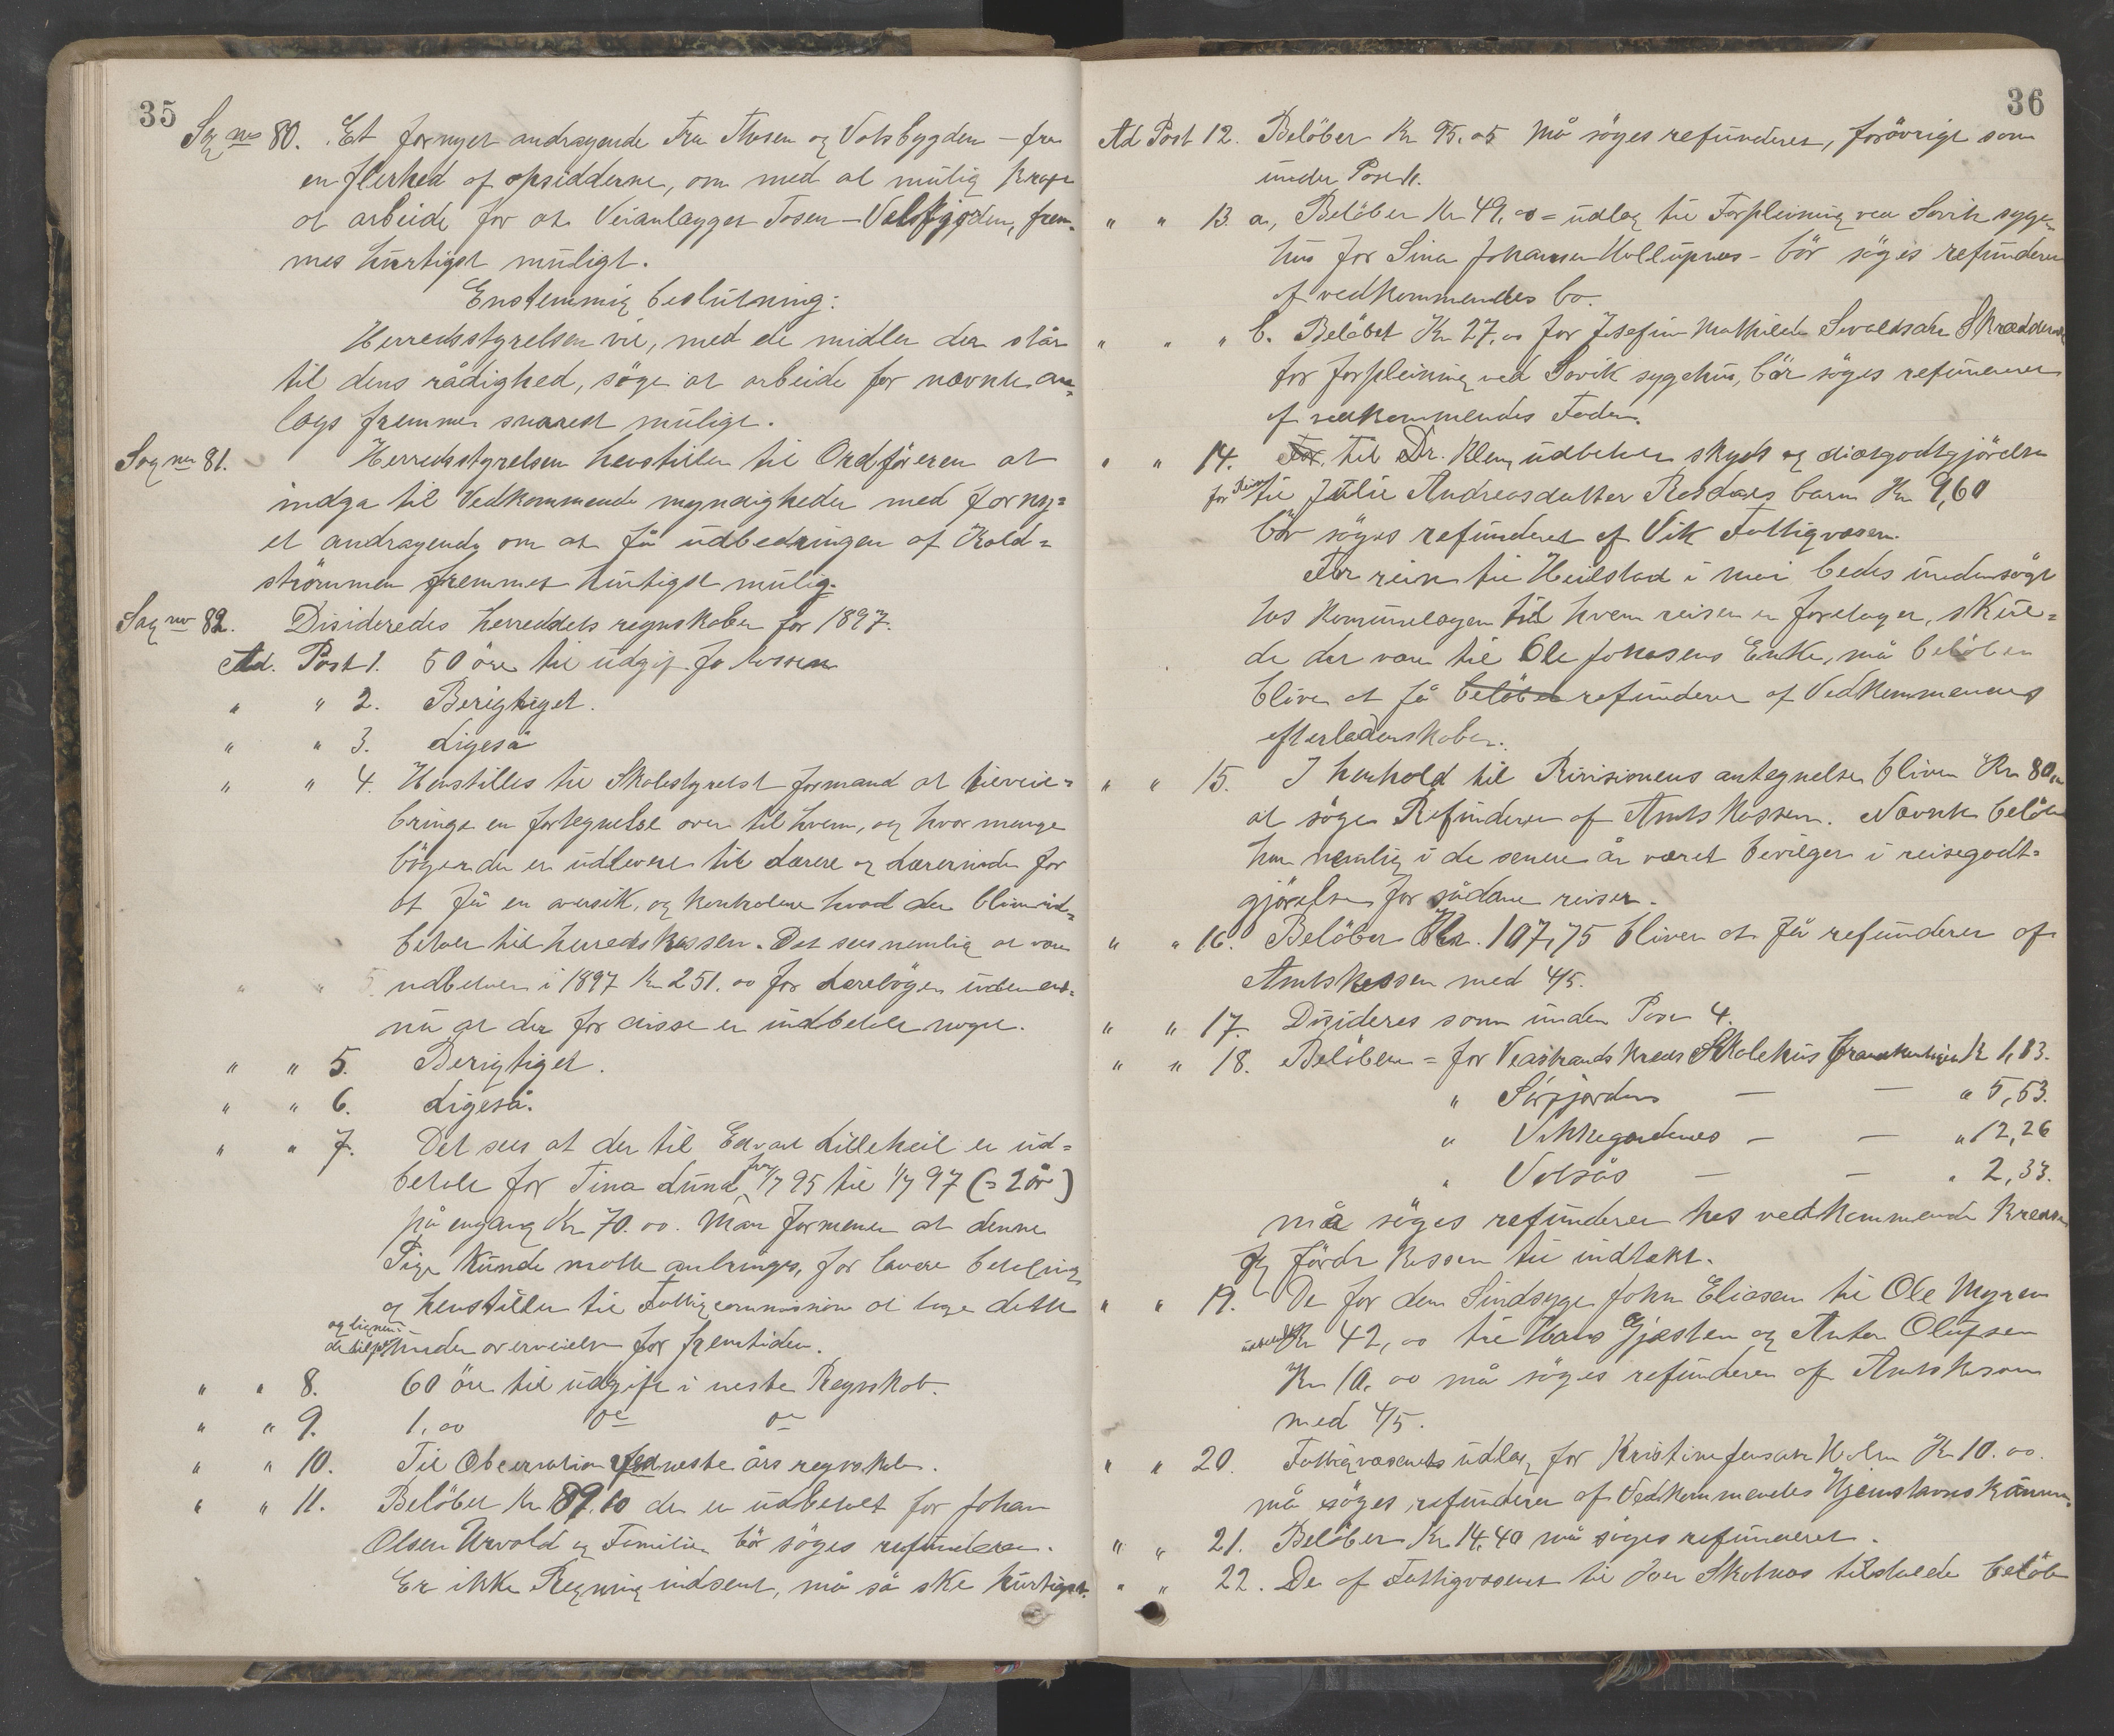 35
Sag no 80. Et fornyet andragende fra Thosen og Velsbygden – fra
en flerhed af opsidderne, om med al mulig kraft
at arbeide for at Veianlægget Tosen – Velfjorden, frem-
mes hurtigst muligt.
Enstemmig beslutning:
Herredsstyrelsen vil, med de midler der står
til dens rådighed, søge at arbeide for nævnte an-
lægs fremme snarest muligt.
Sag no 81. Herredsstyrelsen henstiller til Ordföreren at
indgå til Vedkommende myndigheder med forny=
et andragende om at få udbedringen af Kold=
strömmen fremmet hurtigst mulig.
Sag no 82. Disideredes herreddets regnskaber for 1897.
Ad. Post 1. 50 öre til udgift for kassen
" " 2. Berigtiget.
" " 3. Ligeså
" " 4. Henstilles til Skolestyrets formand at tilveie=
bringe en fortegnelse over til hvem, og hvor mange
böger der er udleveret til Lærere og Lærerinder for
at få en oversik, og kontrolere hvad der bliver ind=
betalt til herredskassen. Det sees nemlig at være
udbetalt i 1897 Kr 251.00 for Lærebøger uden end=
nu at der for disse er indbetalt noget.
" " 5. Berigtiget.
" " 6. Ligeså.
" " 7. Det sees at der til Edvard Lilleheil er ud=
betalt for Tina Lund fra 1/7 95 til 1/7 97 (= 2 år)
på engang Kr 70.00. Man formener at denne
Pige kunde måtte anbringes, for lavere betaling
og henstiller til Fattigcommissionen at tage dette
og lignen-
de tilfælde under overveielse for fremtiden.
" " 8. 60 öre til udgift i neste Regnskab.
" " 9. 1,00 do do
" " 10. Til Observation ved neste års regnskab.
" " 11. Belöbet Kr 89.10 der er udbetalt for Johan
Olsen Urvold og Familie bör søges refunderet.
Er ikke Regning indsent, må så ske hurtigst.
36
Ad Post 12. Belöbet Kr 95.05 må söges refunderet, forövrigt som
under Post 11.
" " 13. a, Belöbet Kr 49,00 = udlæg til Forpleining ved Søvik syge=
hus for Sina Johansen – bör söges refunderet
af vedkommendes bo.
" " " b. Belöbet Kr 27,00 for Josefine Mathilde Sivaldsdtr
for forpleining ved Søvik sygehus, bör söges refunderet
af vedkommendes Fader.
" " 14. For til Dr. Klem udbetalt skyds og diætgodtgjörelse
for reise til Julie Andreasdatter barn Kr 9,60
bör söges refunderet af Vik Fattigvæsen.
For reise til Heilstad i mai bedes undersögt
hos Kommunelægen til hvem reisen er foretaget, skul=
de der være til Ole Johasens Enke, må belöbet
blive at få belöbet refunderet af Vedkommendes
efterladenskaber.
" " 15. I henhold til Rivisionens antegnelse bliver Kr 80,00
at söge Refunderet af Amtskassen. Nævnte belöb
har nemlig i de senere år været bevilget i reisegodt=
gjörelse for sådane reiser.
" " 16. Belöbet Kr. 107,75 bliver at få refunderet af
Amtskassen med 4/5.
" " 17. Disideres som under Post 4.
" " 18. Belöbene = for Veastrands kreds Skolehus Brandkontingent Kr 1,83.
" Sörfjordens — — " 5,53.
" — — " 12,26
" Volsås — — " 2,33.
må söges refunderet hos vedkommende kredse
og föres kassen til indtækt.
" " 19. De for den Sindsyge John Eliasen til Ole Myren
udbetalt Kr 42,00 til Hans Gjesten og Anton Olufsen
Kr 10.00 må söges refunderet af Amtskassen
med 4/5.
" " 20. Fattigvæsenets udlæg for Kristine Jensdtr Holm Kr 10.00.
må söges refunderet af Vedkommendes Hjemstavns kommune.
" " 21. Belöbet Kr 14,40 må söges refunderet.
" " 22. De af Fattigvæsenet til tilstaaede belöb